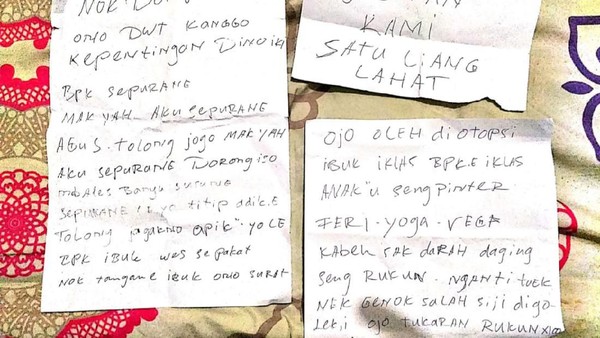 NOK
ONO DWT KANGGO
KEPENTINGAN DINO IKI
BPK SEPURANE
MAK YAH AKU SEPURANE
AGUS. tolong jogo MAK YAH
AKU SEPURANE Dorong iso
mbAles BanYu SUSUNE
SEPURANE titip adik.E
Tolong jagakno apik" yo LE
BPK IBUK wes sepakat
NOK tangane ibuk ono SURAT
KAMI
SATU LIANG
LAHAT
OJO OLEH di OTOPSI
IBUK IKLAS BPK.E IKLAS
ANAK"u seng PinTER
FERI - yoga - VEGA
KABEH SAK DARAH daging
seng RUKUN. NGANTi TUEK
NEK GENOK SALAH siji digo
Leki OJO TUKARAN RUKUN